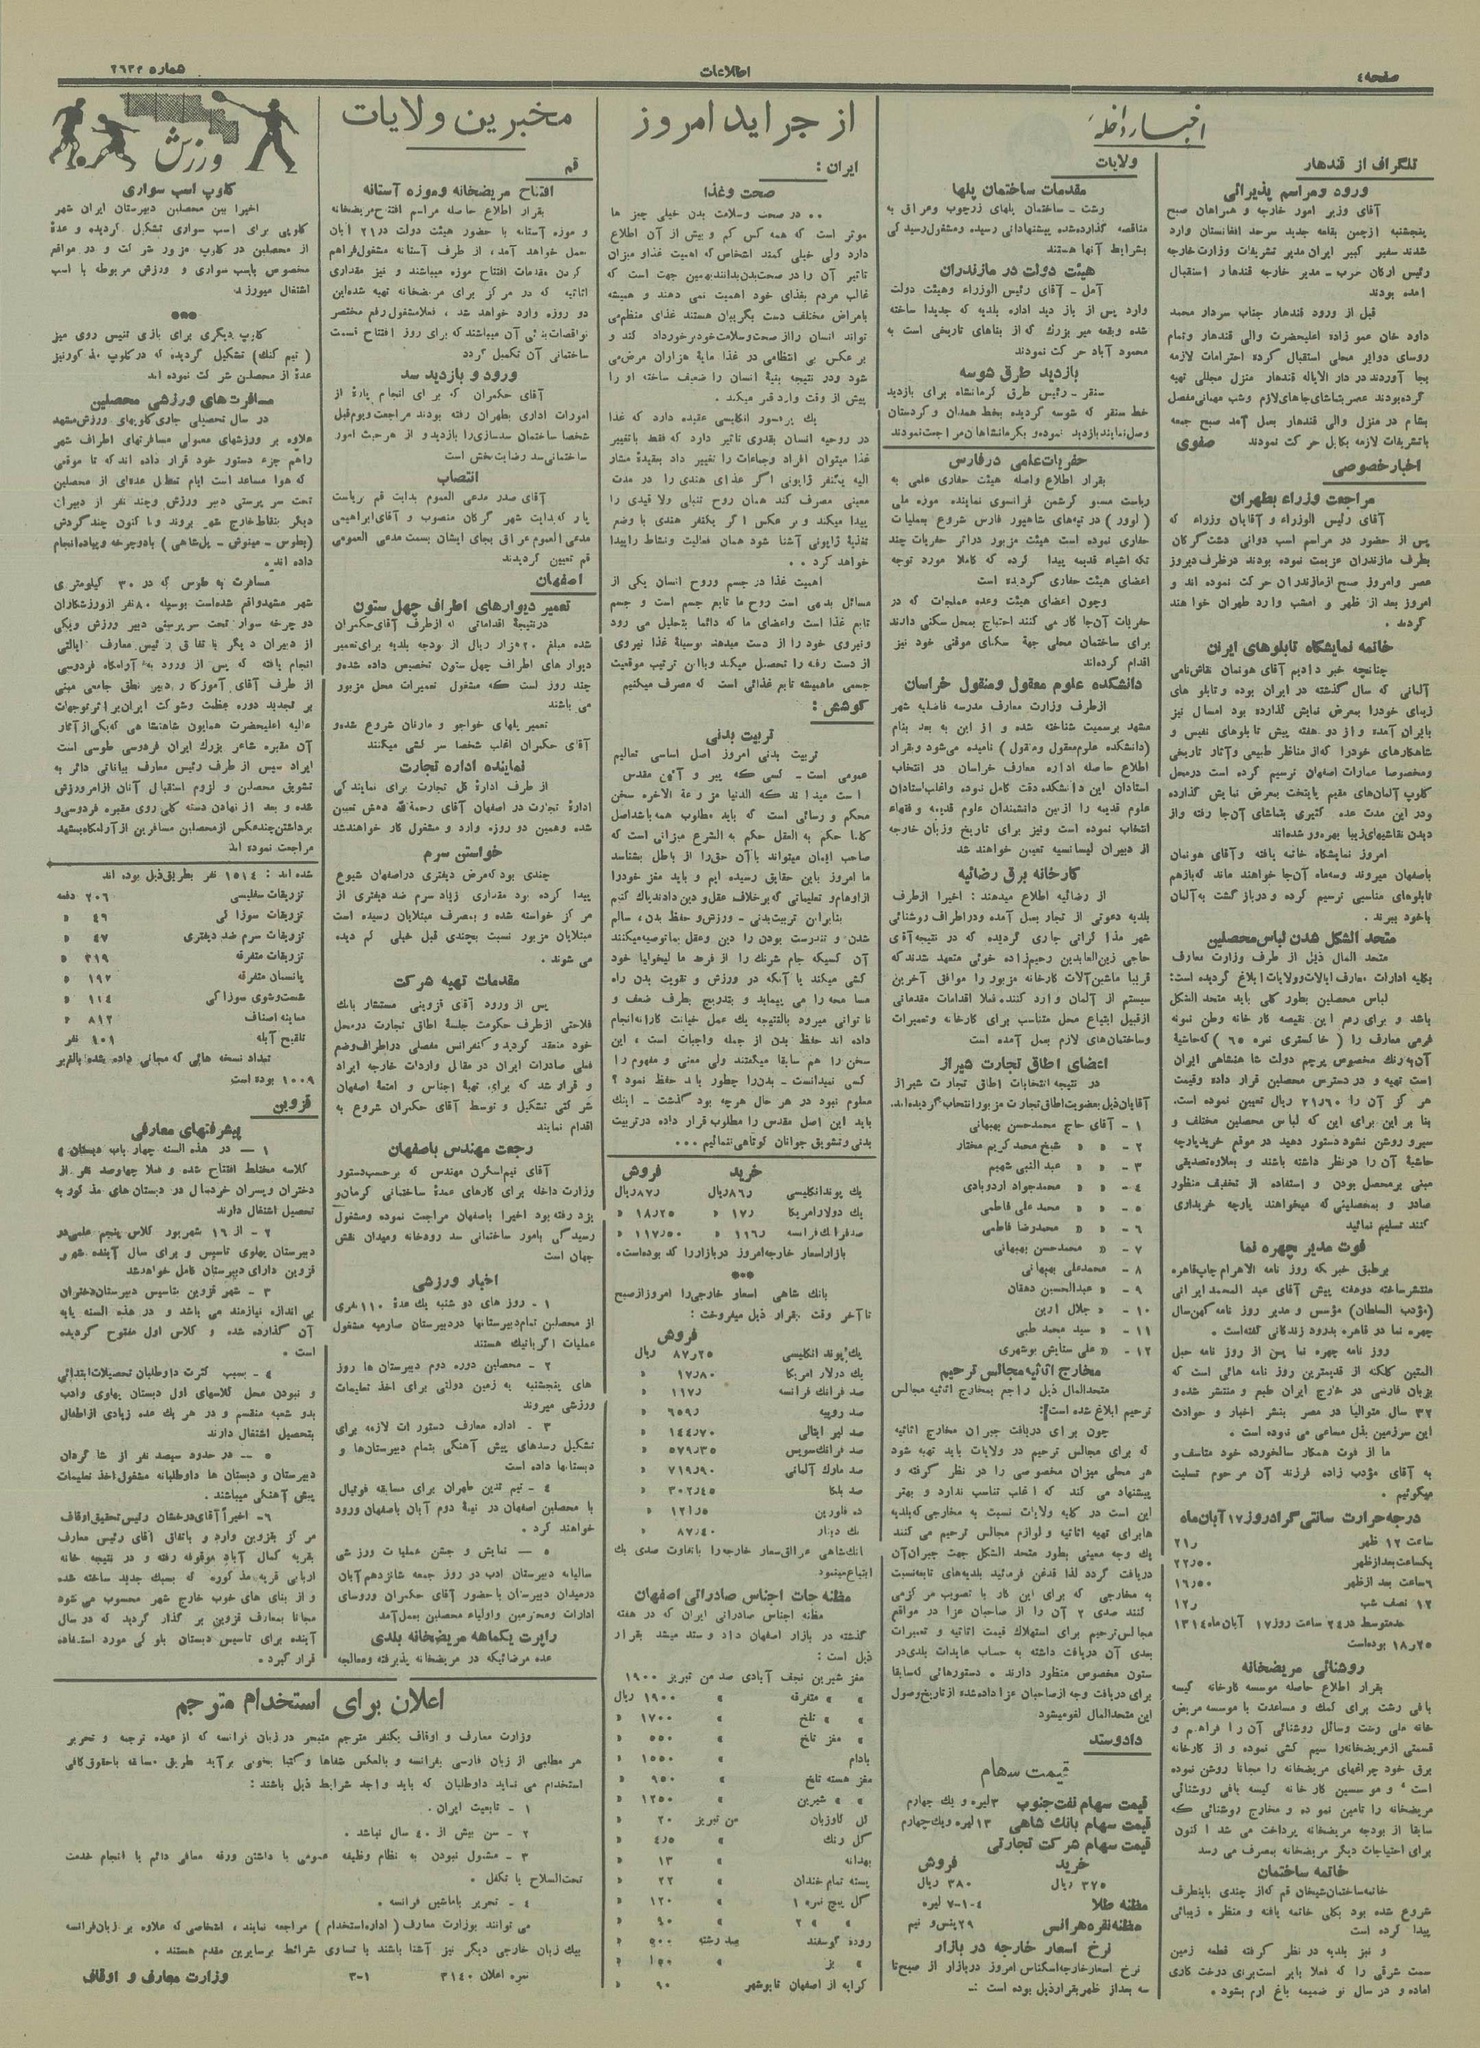 صفحه ٤
اطلاعات
شماره ٢٦٣٤
اخبار داخله
تلگراف از قندهار
ورود ومراسم پذیرائی
آقای وزیر امور خارجه و همراهان صبح
پنجشنبه ازچمن بقلعه جدید سرحد افغانستان وارد
شدند سفیر کبیر ایران مدیر تشریفات وزارت خارجه
رئیس ارکان حرب ـ مدیر خارجه قندهار استقبال
آمده بودند
قبل از ورود قندهار جناب سردار محمد
داود خان عمو زاده اعلیحضرت والی قندهار وتمام
روسای دوایر محلی استقبال کرده احترامات لازمه
بجا آوردند در دار الایاله قندهار منزل مجللی تهیه
گرده بودند عصر بتماشای جاهای لازم وشب مهمانی مفصل
بشام در منزل والی قندهار بعمل آمد صبح جمعه
باتشریفات لازمه بکابل حرکت نمودند صفوی
اخبار خصوصی
مراجعت وزراء بطهران
آقای رئیس الوزراء و آقایان وزراء که
پس از حضور در مراسم اسب دوانی دشت گرگان
بطرف مازندران عزیمت نموده بودند درظرف دیروز
عصر وامروز صبح ازمازندران حرکت نموده اند و
امروز بعد از ظهر و امشب وارد طهران خواهند
گردید .
خاتمه نمایشگاه تابلوهای ایران
چنانچه خبر دادیم آقای هونمان نقاش نامی
آلمانی که سال گذشته در ایران بوده و تابلو های
زیبای خودرا بمعرض نمایش گذارده بود امسال نیز
بایران آمده و از دو هفته پیش تابلوهای نفیس و
شاهکارهای خودرا که از مناظر طبیعی وآثار تاریخی
ومخصوصا عمارات اصفهان ترسیم کرده است درمحل
کلوپ آلمان های مقیم پایتخت بمعرض نمایش گذارده
ودر این مدت عده کثیری بتماشای آن جا رفته واز
دیدن نقاشیهای زیبا بهره ور شده اند
امروز نمایشگاه خاتمه یافته وآقای هونمان
باصفهان میروند وسه ماه آن جا خواهند ماند که بازهم
تابلوهای مناسبی ترسیم کرده و درباز گشت به آلمان
باخود ببرند .
متحد الشکل شدن لباس محصلین
متحد المال ذیل از طرف وزارت معارف
بکلیه ادارات معارف ایالات وولایات ابلاغ گردیده است:
لباس محصلین بطور کلی باید متحد الشکل
باشد و برای رفع این نقیصه کار خانه وطن نمونه
فرمی معارف را ( خاکستری نمره ٦٥ ) که حاشیهٔ
آن به رنگ مخصوص پرچم دولت شاهنشاهی ایران
است تهیه و در دسترس محصلین قرار داده وقیمت
هر گز آن را ٢١٫٦٠ ریال تعیین نموده است.
بنا بر این برای این که لباس محصلین مختلف و
سیر و روشن نشود دستور دهید در موقع خرید پارچه
حاشیهٔ آن را درنظر داشته باشند و بعلاوه تصدیقی
مبنی برمحصل بودن و استفاده از تخفیف منظور
صادر و بمحصلینی که میخواهند پارچه خریداری
کنند تسلیم نمائید
فوت مدیر چهره نما
برطبق خبریکه روز نامه الاهرام چاپ قاهره
منتشرساخته دوهفته پیش آقای عبد المحمد ایرانی
(مؤدب السلطان) مؤسس و مدیر روز نامه کهن سال
چهره نما در قاهره بدرود زندگانی گفته است .
روز نامه چهره نما پس از روز نامه حبل
المتین کلکته از قدیمترین روز نامه هائی است که
بزبان فارسی در خارج ایران طبع و منتشر شده و
٣٢ سال متوالیا در مصر بنشر اخبار و حوادث
این سرزمین بذل مساعی می نموده است .
ما از فوت همکار سالخورده خود متاسف و
به آقای مؤدب زاده فرزند آن مرحوم تسلیت
میگوئیم .
درجه حرارت سانتی گرادروز ١٧ آبان ماه
ساعت ١٢ ظهر ٢١٫
یکساعت بعدازظهر ٢٢٫٥٠
٦ ساعت بعد ازظهر ١٦٫٥٠
١٢ نصف شب ١٢٫
حدمتوسط در٢٤ ساعت روز ١٧ آبان ماه ١٣١٤
١٨٫٢٥ بوده است
روشنائی مریضخانه
بقرار اطلاع حاصله موسسه کارخانه کیسه
بافی رشت برای کمک و مساعدت با موسسه مریض
خانه ملی رشت وسائل روشنائی آن را فراهم و
قسمتی از مریضخانه را سیم کشی نموده و از کارخانه
برق خود چراغهای مریضخانه را مجانا روشن نموده
است و موسسین کارخانه کیسه بافی روشنائی
مریضخانه را تامین نموده و مخارج روشنائی که
سابقا از بودجه مریضخانه پرداخت می شد اکنون
برای احتیاجات دیگر مریضخانه بمصرف می رسد
خاتمه ساختمان
خاتمه ساختمان شیخان قم که از چندی باینطرف
شروع شده بود بکلی خاتمه یافته و منظره زیبائی
پیدا کرده است
و نیز بلدیه در نظر گرفته قطعه زمین
سمت شرقی را که فعلا بایر است برای درخت کاری
آماده و در سال نو ضمیمه باغ ارم بشود .
ولایات
مقدمات ساختمان پلها
رشت ـ ساختمان پلهای زرچوب وعراق به
مناقصه گذارده شده پیشنهاداتی رسیده ومشغول رسیدگی
بشرایط آنها هستند
هیئت دولت در مازندران
آمل ـ آقای رئیس الوزراء وهیئت دولت
وارد پس از باز دید اداره بلدیه که جدیدا ساخته
شده وبقعه میر بزرگ که از بناهای تاریخی است به
محمود آباد حرکت نمودند
بازدید طرق شوسه
سنقر ـ رئیس طرق کرمانشاه برای بازدید
خط سنقر که شوسه گردیده بخط همدان و کردستان
وصل نمایند بازدید نموده و بکرمانشاهان مراجعت نمودند
حفریات علمی درفارس
بقرار اطلاع واصله هیئت حفاری علمی به
ریاست مسیو کرشمن فرانسوی نماینده موزه ملی
( لوور ) در تپه های شاهپور فارس شروع بعملیات
حفاری نموده است هیئت مزبور دراثر حفریات چند
تکه اشیاء قدیمه پیدا کرده که کاملا مورد توجه
اعضای هیئت حفاری گردیده است
وچون اعضای هیئت وعده عملجات که در
حفریات آن جا کار می کنند احتیاج بمحل سکنی دارند
برای ساختمان محلی جهة سکنای موقتی خود نیز
اقدام کرده اند
دانشکده علوم معقول ومنقول خراسان
ازطرف وزارت معارف مدرسه فاضلیه شهر
مشهد برسمیت شناخته شده و از این به بعد بنام
(دانشکده علوم معقول ومنقول) نامیده می شود وبقرار
اطلاع حاصله اداره معارف خراسان در انتخاب
استادان این دانشکده دقت کامل نموده واغلب استادان
علوم قدیمه را از بین دانشمندان علوم قدیمه و فقهاء
انتخاب نموده است ونیز برای تاریخ وزبان خارجه
از دبیران لیسانسیه تعیین خواهند شد
کارخانه برق رضائیه
از رضائیه اطلاع میدهند : اخیرا ازطرف
بلدیه دعوتی از تجار بعمل آمده ودراطراف روشنائی
شهر مذاکراتی جاری گردیده که در نتیجه آقای
حاجی زین العابدین رحیم زاده خوئی متعهد شدند که
قریبا ماشین آلات کارخانه مزبور را موافق آخرین
سیستم از آلمان وارد کنند. فعلا اقدامات مقدماتی
ازقبیل ابتیاع محل متناسب برای کارخانه وتعمیرات
وساختمان های لازم بعمل آمده است
اعضای اطاق تجارت شیراز
در نتیجه انتخابات اطاق تجارت شیراز
آقایان ذیل بعضویت اطاق تجارت مزبور انتخاب گردیده اند.
١ ـ آقای حاج محمدحسن بهبهانی
٢ ـ » » شیخ محمد کریم مختار
٣ ـ » » عبد النبی شهیم
٤ ـ » » محمدجواد اردوبادی
٥ ـ » » محمد علی فاطمی
٦ ـ » » محمدرضا فاطمی
٧ ـ » محمدحسن بهبهانی
٨ ـ » محمدعلی بهبهانی
٩ ـ » عبدالحسین دهقان
١٠ ـ » جلال آرین
١١ ـ » سید محمد طبی
١٢ ـ » علی ستایش بوشهری
مخارج اثاثیه مجالس ترحیم
متحدالمال ذیل راجع بمخارج اثاثیه مجالس
ترحیم ابلاغ شده است:
چون برای دریافت جبران مخارج اثاثیه
که برای مجالس ترحیم در ولایات باید تهیه شود
هر محلی میزان مخصوصی را در نظر گرفته و
پیشنهاد می کند که اغلب تناسب ندارد و بهتر
این است در کلیه ولایات نسبت به مخارجی که بلدیه
هابرای تهیه اثاثیه و لوازم مجالس ترحیم می کنند
یک وجه معینی بطور متحد الشکل جهت جبران آن
دریافت گردد لذا قدغن فرمائید بلدیه های تابعه نسبت
به مخارجی که برای این کار با تصویب مرکزمی
کنند صدی ٢ آن را از صاحبان عزا در مواقع
مجالس ترحیم برای استهلاک قیمت اثاثیه و تعمیرات
بعدی آن دریافت داشته به حساب عایدات بلدی در
ستون مخصوص منظور دارند . دستورهائی که سابقا
برای دریافت وجه ازصاحبان عزا داده شده از تاریخ وصول
این متحدالمال لغو میشود
دادوستد
قیمت سهام
قیمت سهام نفت جنوب ٣ لیره و یک چهارم
قیمت سهام بانک شاهی ١٣ لیره ویک چهارم
قیمت سهام شرکت تجارتی
خرید فروش
٣٧٥ ریال ٣٨٠ ریال
مظنه طلا ٧-١-٤ لیره
مظنه نقره هرانس ٢٩ پنس و نیم
نرخ اسعار خارجه در بازار
نرخ اسعار خارجه اسکناس امروز دربازار از صبح تا
سه بعد از ظهر بقرار ذیل بوده است :-
از جراید امروز
ایران :
صحت وغذا
.. در صحت وسلامت بدن خیلی چیز ها
موثر است که همه کس کم و بیش از آن اطلاع
دارد ولی خیلی کمند اشخاص که اهمیت غذا و میزان
تاثیر آن را در صحت بدن بدانند بهمین جهت است که
غالب مردم بغذای خود اهمیت نمی دهند و همیشه
بامراض مختلف دست بگریبان هستند غذای منظم می
تواند انسان را از صحت وسلامت خود برخوردار کند و
برعکس بی انتظامی در غذا مایهٔ هزاران مرض می
شود ودر نتیجه بنیهٔ انسان را ضعیف ساخته او را
پیش از وقت وارد قبر میکند .
یک پرفسور انگلیسی عقیده دارد که غذا
در روحیه انسان بقدری تاثیر دارد که فقط باتغییر
غذا میتوان افراد وجماعات را تغییر داد بعقیدهٔ مشار
الیه یکنفر ژاپونی اگر غذای هندی را در مدت
معینی مصرف کند همان روح تنبلی ولا قیدی را
پیدا میکند و برعکس اگر یکنفر هندی با وضع
تغذیهٔ ژاپونی آشنا شود همان فعالیت ونشاط را پیدا
خواهد کرد ..
اهمیت غذا در جسم وروح انسان یکی از
مسائل بدیهی است روح ما تابع جسم است و جسم
تابع غذا است واعضای ما که دائما بتحلیل می رود
ونیروی خود را از دست میدهند بوسیلهٔ غذا نیروی
از دست رفته را تحصیل میکند وبااین ترتیب موقعیت
جسمی ماهمیشه تابع غذائی است که مصرف میکنیم
کوشش :
تربیت بدنی
تربیت بدنی امروز اصل اساسی تعالیم
عمومی است ـ کسی که پیر و آئین مقدس
است میداند که الدنیا مزرعة الاخره سخن
محکم و رسائی است که باید مطلوب همه باشد اصل
کلما حکم به العقل حکم به الشرع میزانی است که
صاحب ایمان میتواند باآن حق را از باطل بشناسد
ما امروز باین حقایق رسیده ایم و باید مغز خودرا
ازاوهام و تعلیماتی که برخلاف عقل و دین دادندپاک کنیم
بنابراین تربیت بدنی ـ ورزش و حفظ بدن ، سالم
شدن و تندرست بودن را دین وعقل بماتوصیه میکنند
آن کسیکه جام شرنگ را از فرط مالیخولیا خود
کشی میکند یا آنکه در ورزش و تقویت بدن راه
مسامحه را می پیماید و بتدریج بطرف ضعف و
ناتوانی میرود بالنتیجه یک عمل خیانت کارانه انجام
داده اند حفظ بدن از جمله واجبات است ، این
سخن را هم سابقا میگفتند ولی معنی و مفهوم را
کسی نمیدانست ـ بدن را چطور باید حفظ نمود ؟
معلوم نبود در هر حال هرچه بود گذشت ـ اینک
باید این اصل مقدس را مطلوب قرار داده درتربیت
بدنی وتشویق جوانان کوتاهی ننمائیم ...
خرید فروش
یک پوندانگلیسی ٨٦٫ ریال ٨٧٫ ریال
یک دولارامریکا ١٧٫ » ١٨٫٢٥ »
صدفرانک فرانسه ١١٦٫ » ١١٧٫٥٠ »
بازاراسعار خارجه امروز دربازاررا کد بوده است.
***
بانک شاهی اسعار خارجی را امروزازصبح
تاآخر وقت بقرار ذیل میفروخت :
فروش
یک پوند انگلیسی ٨٧٫٢٥ ریال
یک دولار امریکا ١٧٫٨٠ »
صد فرانک فرانسه ١١٧٫ »
صد روپیه ٦٥٩٫ »
صد لیر ایتالی ١٤٤٫٧٠ »
صد فرانک سویس ٥٧٩٫٣٥ »
صد مارک آلمانی ٧١٩٫٩٠ »
صد بلگا ٣٠٢٫٤٥ »
ده فلورین ١٢١٫٥ »
یک دینار ٨٧٫٤٠ »
بانک شاهی عراق اسعار خارجه را بتفاوت صدی یک
ابتیاع مینمود
مظنه جات اجناس صادراتی اصفهان
مظنه اجناس صادراتی ایران که در هفته
گذشته در بازار اصفهان داد و ستد میشد بقرار
ذیل است :
مغز شیرین نجف آبادی صد من تبریز ١٩٠٠
» » متفرقه » ١٩٠٠ ریال
» » تلخ » ١٧٠٠ »
» مغز تلخ » ٥٥٠ »
بادام » ١٥٥٠ »
مغز هسته تلخ » ٩٥٠ »
» » شیرین » ١٢٥٠ »
گل گاوزبان من تبریز ٢٠ »
گل رنگ » ٤٫٥ »
بهدانه » ١٣ »
پسته تمام خندان » ٢٢ »
گل پیچ نمره ١ » ١٢٠ »
» » ٢ » ٩٠ »
روده گوسفند صد رشته ٥٠٠ »
» بز » ١٥٠ »
کرایه از اصفهان تابوشهر ٩٠ »
مخبرین ولایات
قم
افتتاح مریضخانه وموزه آستانه
بقرار اطلاع حاصله مراسم افتتاح مریضخانه
و موزه آستانه با حضور هیئت دولت در٢١ آبان
عمل خواهد آمد ، از طرف آستانه مشغول فراهم
کردن مقدمات افتتاح موزه میباشند و نیز مقداری
اثاثیه که در مرکز برای مریضخانه تهیه شده این
دو روزه وارد خواهد شد ، فعلامشغول رفع مختصر
نواقصات بنائی آن میباشند که برای روز افتتاح قسمت
ساختمانی آن تکمیل گردد
ورود و بازدید سد
آقای حکمران که برای انجام پارهٔ از
امورات اداری بطهران رفته بودند مراجعت ویوم قبل
شخصا ساختمان سدسازی را بازدید و از هرحیث امور
ساختمانی سد رضایت بخش است
انتصاب
آقای صدر مدعی العموم بدایت قم ریاست
پارکه بدایت شهر گرگان منصوب و آقای ابراهیمی
مدعی العموم عراق بجای ایشان بسمت مدعی العمومی
قم تعیین گردیدند
اصفهان
تعمیر دیوارهای اطراف چهل ستون
درنتیجهٔ اقداماتی که ازطرف آقای حکمران
شده مبلغ ٢٠ هزار ریال از بودجه بلدیه برای تعمیر
دیوار های اطراف چهل ستون تخصیص داده شده و
چند روز است که مشغول تعمیرات محل مزبور
می باشند
تعمیر پلهای خواجو و مارنان شروع شده و
آقای حکمران اغلب شخصا سرکشی میکنند
نماینده اداره تجارت
از طرف ادارهٔ کل تجارت برای نمایندگی
ادارهٔ تجارت در اصفهان آقای رحمة الله دهش تعیین
شده وهمین دو روزه وارد و مشغول کار خواهند شد
خواستن سرم
چندی بود که مرض دیفتری در اصفهان شیوع
پیدا کرده بود مقداری زیاد سرم ضد دیفتری از
مرکز خواسته شده و بمصرف مبتلایان رسیده است
مبتلایان مزبور نسبت بچندی قبل خیلی کم دیده
می شوند .
مقدمات تهیه شرکت
پس از ورود آقای قزوینی مستشار بانک
فلاحتی ازطرف حکومت جلسهٔ اطاق تجارت درمحل
خود منعقد گردید و کنفرانس مفصلی دراطراف وضع
فعلی صادرات ایران در مقابل واردات خارجه ایراد
و قرار شد که برای تهیهٔ اجناس و امتعهٔ اصفهان
شرکتی تشکیل و توسط آقای حکمران شروع به
اقدام نمایند
رجعت مهندس باصفهان
آقای نیم اسگرن مهندس که برحسب دستور
وزارت داخله برای کارهای عمدهٔ ساختمانی کرمان و
یزد رفته بود اخیرا باصفهان مراجعت نموده و مشغول
رسیدگی بامور ساختمانی سد رودخانه ومیدان نقش
جهان است
اخبار ورزشی
١ ـ روز های دو شنبه یک عدهٔ ١١٠ نفری
از محصلین تمام دبیرستانها در دبیرستان صارمیه مشغول
عملیات آکروباتیک هستند
٢ ـ محصلین دوره دوم دبیرستان ها روز
های پنجشنبه به زمین دولتی برای اخذ تعلیمات
ورزشی میروند
٣ ـ اداره معارف دستورات لازمه برای
تشکیل رسدهای پیش آهنگی بتمام دبیرستان ها و
دبستانها داده است
٤ ـ تیم تدین طهران برای مسابقه فوتبال
با محصلین اصفهان در نیمهٔ دوم آبان باصفهان ورود
خواهند کرد .
٥ ـ نمایش و جشن عملیات ورزشی
سالیانه دبیرستان ادب در روز جمعه شانزدهم آبان
درمیدان دبیرستان با حضور آقای حکمران وروسای
ادارات ومحترمین واولیاء محصلین بعمل آمد
راپرت یکماهه مریضخانه بلدی
عده مرضائیکه در مریضخانه پذیرفته ومعالجه
ورزش
کلوپ اسب سواری
اخیرا بین محصلین دبیرستان ایران شهر
کلوپی برای اسب سواری تشکیل گردیده و عدهٔ
از محصلین در کلوپ مزبور شرکت و در مواقع
مخصوص باسب سواری و ورزش مربوطه با اسب
اشتغال میورزند
***
کلوپ دیگری برای بازی تنیس روی میز
( تیم گنک ) تشکیل گردیده که درکلوپ مذکورنیز
عدهٔ از محصلین شرکت نموده اند
مسافرت های ورزشی محصلین
در سال تحصیلی جاری کلوپهای ورزش مشهد
علاوه بر ورزشهای معمولی مسافرتهای اطراف شهر
راهم جزء دستور خود قرار داده اند که تا موقعی
که هوا مساعد است ایام تعطیل عده ای از محصلین
تحت سرپرستی دبیر ورزش وچند نفر از دبیران
دیگر بنقاط خارج شهر بروند وتا کنون چند گردش
(بطوس ـ مینوش ـ پل شاهی ) بادوچرخه وپیاده انجام
داده اند.
مسافرت به طوس که در ٣٠ کیلومتری
شهر مشهدواقع شده است بوسیله ٨٠ نفر ازورزشکاران
دوچرخه سوار تحت سرپرستی دبیر ورزش ویکی
از دبیران دیگر باتفاق رئیس معارف ایالتی
انجام یافته که پس از ورود به آرامگاه فردوسی
از طرف آقای آموزگار دبیر نطق جامعی مبنی
بر تجدید دوره عظمت وشوکت ایران براثرتوجهات
عالیه اعلیحضرت همایون شاهنشاهی که یکی ازآثار
آن مقبره شاعر بزرگ ایران فردوسی طوسی است
ایراد سپس از طرف رئیس معارف بیاناتی دائر به
تشویق محصلین و لزوم استقبال آنان ازامرورزش
شده و بعد از نهادن دسته گلی روی مقبره فردوسی و
برداشتن چندعکس ازمحصلین مسافرین ازآرامگاه بمشهد
مراجعت نموده اند
شده اند : ١٥١٤ نفر بطریق ذیل بوده اند
تزریقات سفلیسی ٢٠٦ دفعه
تزریقات سوزاکی ٤٩ »
تزریقات سرم ضد دیفتری ٤٧ »
تزریقات متفرقه ٣١٩ »
پانسمان متفرقه ١٩٧ »
شستشوی سوزاکی ١١٤ »
معاینه اصناف ٨١٢ »
تلقیح آبله ١٠١ نفر
تعداد نسخه هائی که مجانی داده شده بالغ بر
١٠٠٩ بوده است
قزوین
پیشرفتهای معارفی
١ ـ در هذه السنه چهار باب دبستان ٤
کلاسه مختلط افتتاح شده و فعلا چهارصد نفر از
دختران وپسران خردسال در دبستان های مذکور به
تحصیل اشتغال دارند
٢ ـ از ١٦ شهریور کلاس پنجم علمی در
دبیرستان پهلوی تاسیس و برای سال آینده شهر
قزوین دارای دبیرستان کامل خواهد شد
٣ ـ شهر قزوین بتاسیس دبیرستان دختران
بی اندازه نیازمند می باشد و در هذه السنه پایه
آن گذارده شده و کلاس اول مفتوح گردیده
است .
٤ ـ بسبب کثرت داوطلبان تحصیلات ابتدائی
و نبودن محل کلاسهای اول دبستان پهلوی وادب
بدو شعبه منقسم و در هر یک عده زیادی ازاطفال
بتحصیل اشتغال دارند
٥ ـ در حدود سیصد نفر از شاگردان
دبیرستان و دبستان ها داوطلبانه مشغول اخذ تعلیمات
پیش آهنگی میباشند .
٦ ـ اخیراً آقای درخشان رئیس تحقیق اوقاف
مرکز بقزوین وارد و باتفاق آقای رئیس معارف
بقریه کمال آباد موقوفه رفته و در نتیجه خانه
اربابی قریه مذکوره که بسبک جدید ساخته شده
و از بنای های خوب خارج شهر محسوب می شود
مجانا بمعارف قزوین برگذار گردید که در سال
آینده برای تاسیس دبستان بلوکی مورد استفاده
قرار گیرد .
اعلان برای استخدام مترجم
وزارت معارف و اوقاف یکنفر مترجم متبحر در زبان فرانسه که از عهده ترجمه و تحریر
هر مطلبی از زبان فارسی بفرانسه و بالعکس شفاها و کتبا بخوبی برآید طریق مسابقه باحقوق کافی
استخدام می نماید داوطلبان که باید واجد شرایط ذیل باشند :
١ ـ تابعیت ایران .
٢ ـ سن بیش از ٤٠ سال نباشد .
٣ ـ مشمول نبودن به نظام وظیفه عمومی با داشتن ورقه معافی دائم یا انجام خدمت
تحت السلاح یا تکفل .
٤ ـ تحریر باماشین فرانسه .
می توانند بوزارت معارف ( اداره استخدام ) مراجعه نمایند ، اشخاصی که علاوه بر زبان فرانسه
بیک زبان خارجی دیگر نیز آشنا باشند با تساوی شرائط برسایرین مقدم هستند .
نمره اعلان ٣١٤٠ ٣-١ وزارت معارف و اوقاف